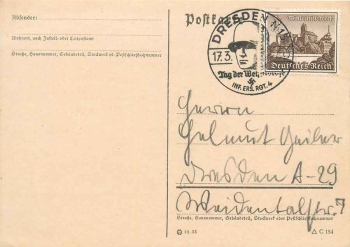 Absender:
Postkarte
Wohnort, auch Zustell- oder Leitpostamt
Straße, Hausnummer, Gebäudeteil, Stockwerk od. Postschließfachnummer
DRESDEN
17.3.
Tag der Wehrmacht
INF. ERS. RGT. 4
Deutsches Reich
Herrn
Helmut Geiler
Dresden A-29
Weidentalstr. 7
Straße, Hausnummer, Gebäudeteil, Stockwerk oder Postschließfachnummer
C 154